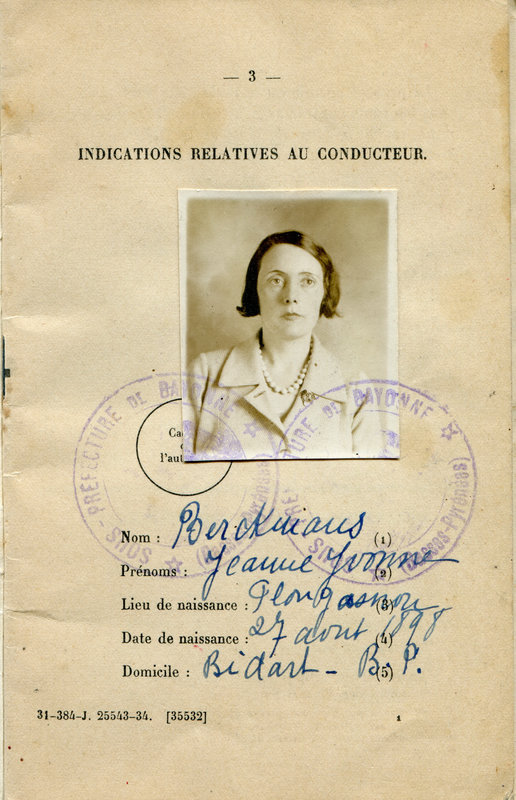 — 3 —
INDICATIONS RELATIVES AU CONDUCTEUR.
SOUS PRÉFECTURE DE BAYONNE
SOUS PRÉFECTURE DE BAYONNE
(Basses-Pyrénées)
Ca
l'aut
Nom : Berckmans (1)
Prénoms : Jeanne Yvonne (2)
Lieu de naissance : Plougasnou (3)
Date de naissance : 27 aout 1898 (4)
Domicile : Bidart - B. P. (5)
31-384-J. 25543-34. [35532] 1